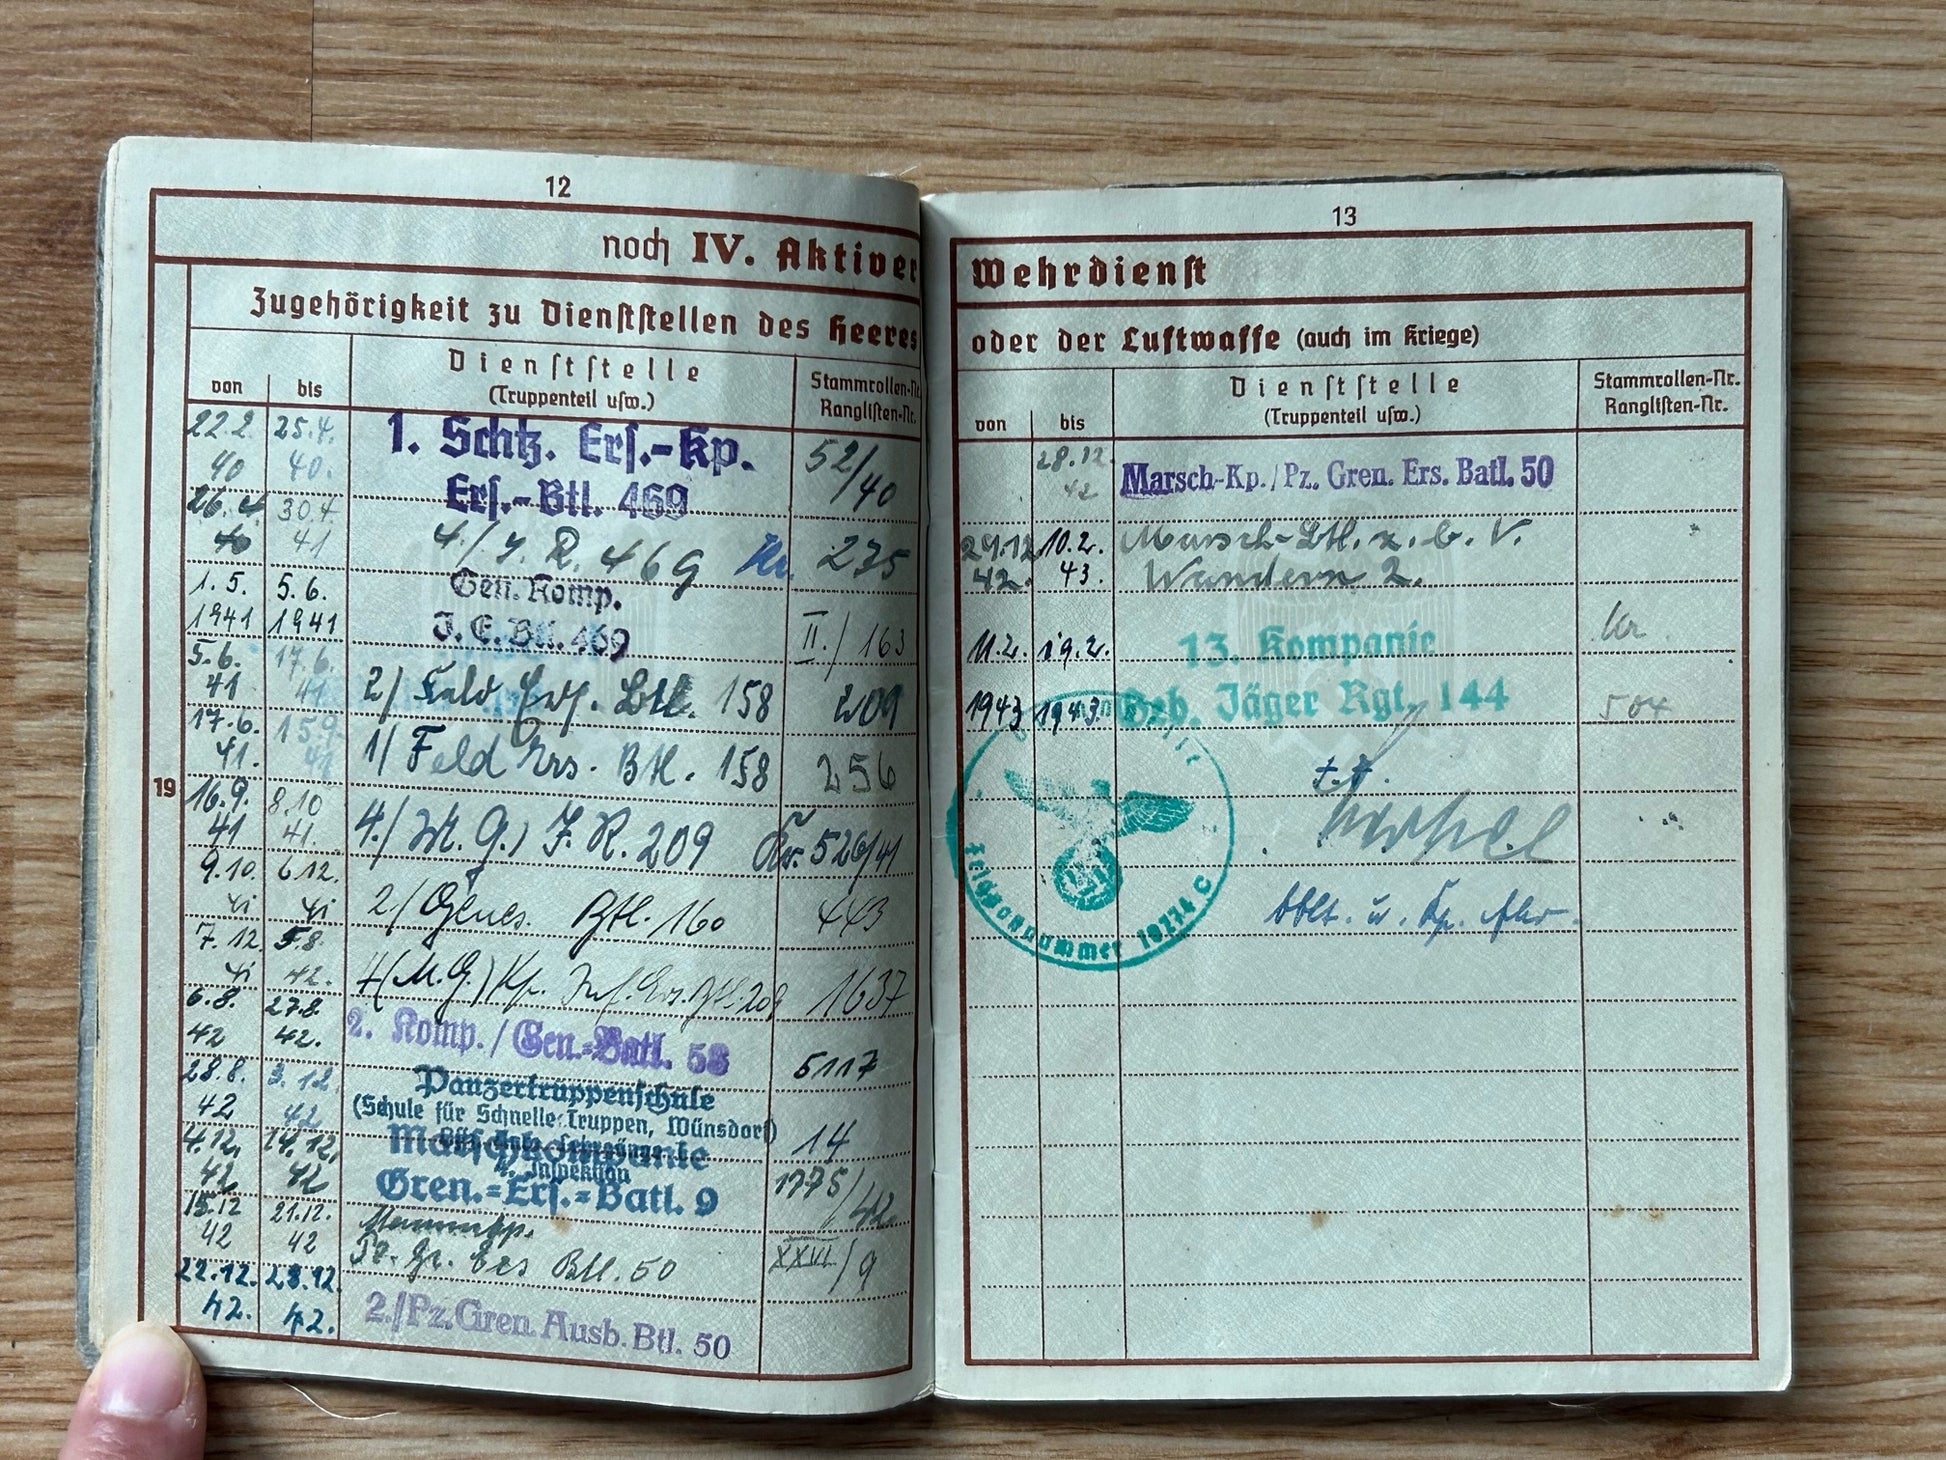 12
noch IV. Aktiver
Zugehörigkeit zu Dienststellen des Heeres
von bis Dienststelle
(Truppenteil usw.)
Stammrollen-Nr.
Ranglisten-Nr.
19
22.2. 25.4. 1. Schtz. Ers.-Kp. 52/40
40 40. Ers.-Btl. 469
26.4. 30.4. 4./J. R. 469 275
40 41
1.5. 5.6. Gen. Komp.
1941 1941 J. E. Btl. 469 II./163
5.6. 17.6. 2/ Feld Ers. Btl. 158 209
41 41
17.6. 15.9. 1/ Feld Ers. Btl. 158 256
41. 41
16.9. 8.10 4./M.G.) J.R. 209 526/41
41 41.
9.10. 6.12. 2/ Genes. Btl. 160 443
41 41
7.12. 5.8. 4(M.G.) Kp. Inf. Ers. Btl. 209 1637
41 42.
6.8. 27.8. 2. Komp./Gen.-Batl. 58 5117
42 42.
28.8. 3.12. Panzertruppenschule
(Schule für Schnelle Truppen, Wünsdorf) 14
42 42
4. Inspektion
4.12. 14.12. Marschkompanie 1775/42
42 42 Gren.=Ers.=Batl. 9
15.12 21.12.
42 42 Pz. Gr. Ers Btl. 50 XXVI/9
22.12. 28.12. 2./Pz. Gren. Ausb. Btl. 50
42. 42.
13
Wehrdienst
oder der Luftwaffe (auch im Kriege)
von bis Dienststelle
(Truppenteil usw.)
Stammrollen-Nr.
Ranglisten-Nr.
28.12. Marsch-Kp./Pz. Gren. Ers. Batl. 50
42
29.12. 10.2. Marsch-Btl. z. b. V.
42. 43. Wandern 2.
11.2. 19.2. 13. Kompanie
1943 1943. Geb. Jäger Rgt. 144 504
Feldpostnummer 19274 C
Oblt. u. Kp. Fhr.